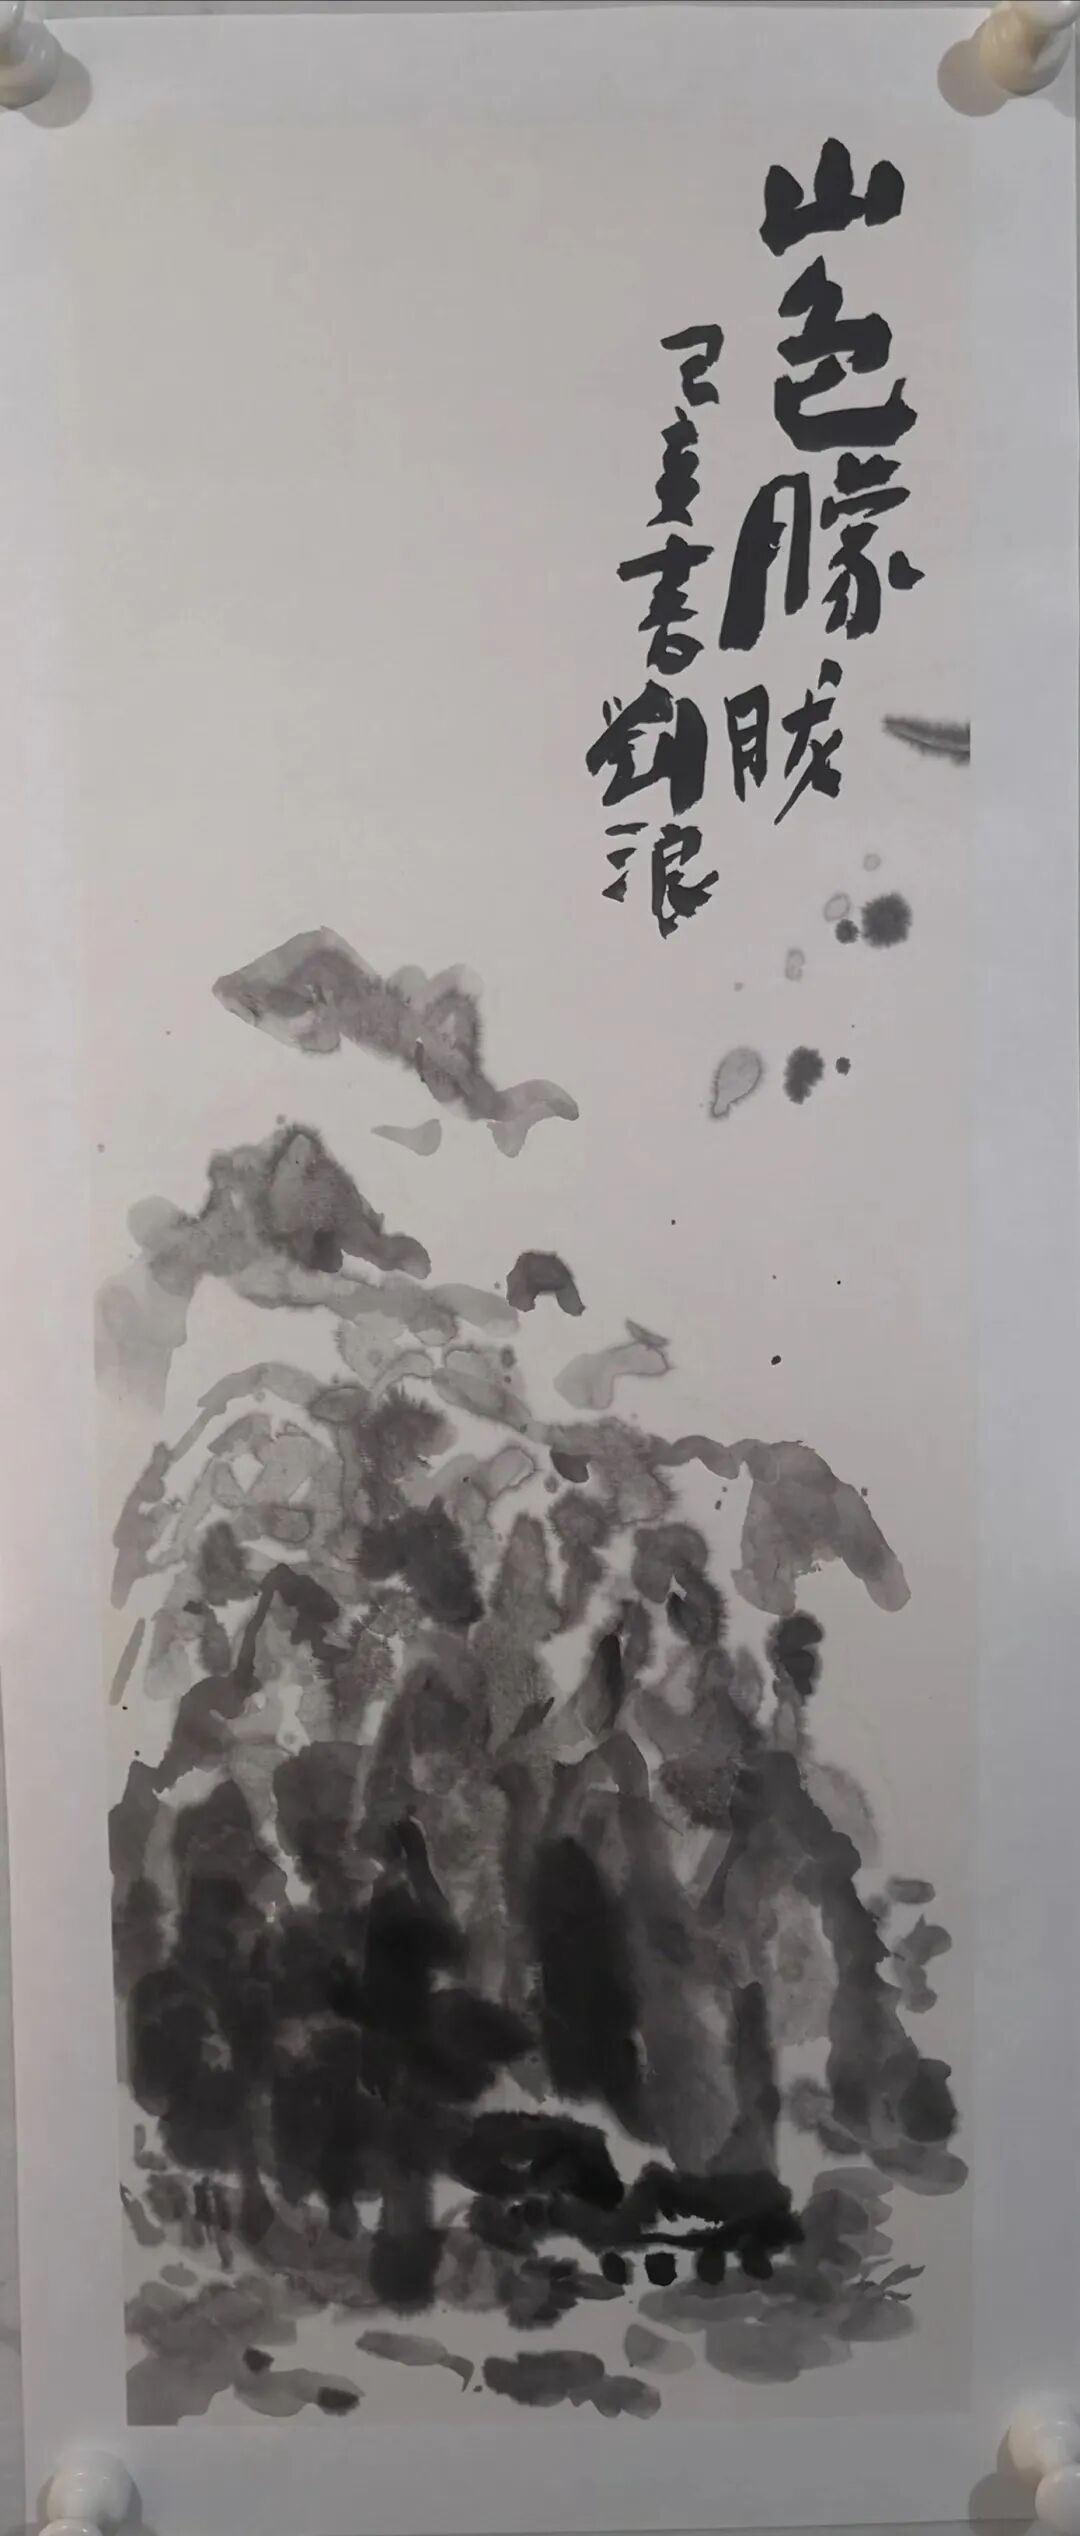 山色朦胧
己亥书刘浪